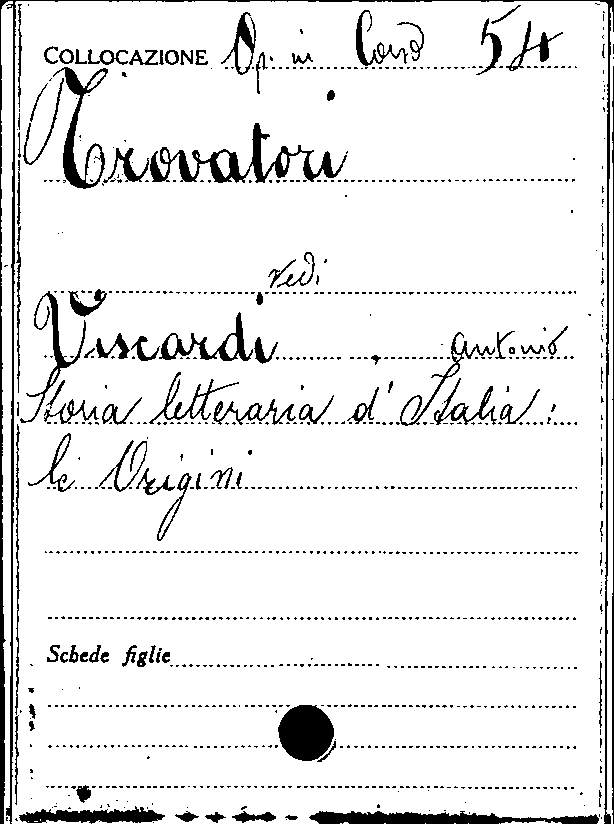 COLLOCAZIONE Op. in Corso 54
Trovatori
vedi
Viscardi, Antonio
Storia letteraria d'Italia:
le Origini
Schede figlie